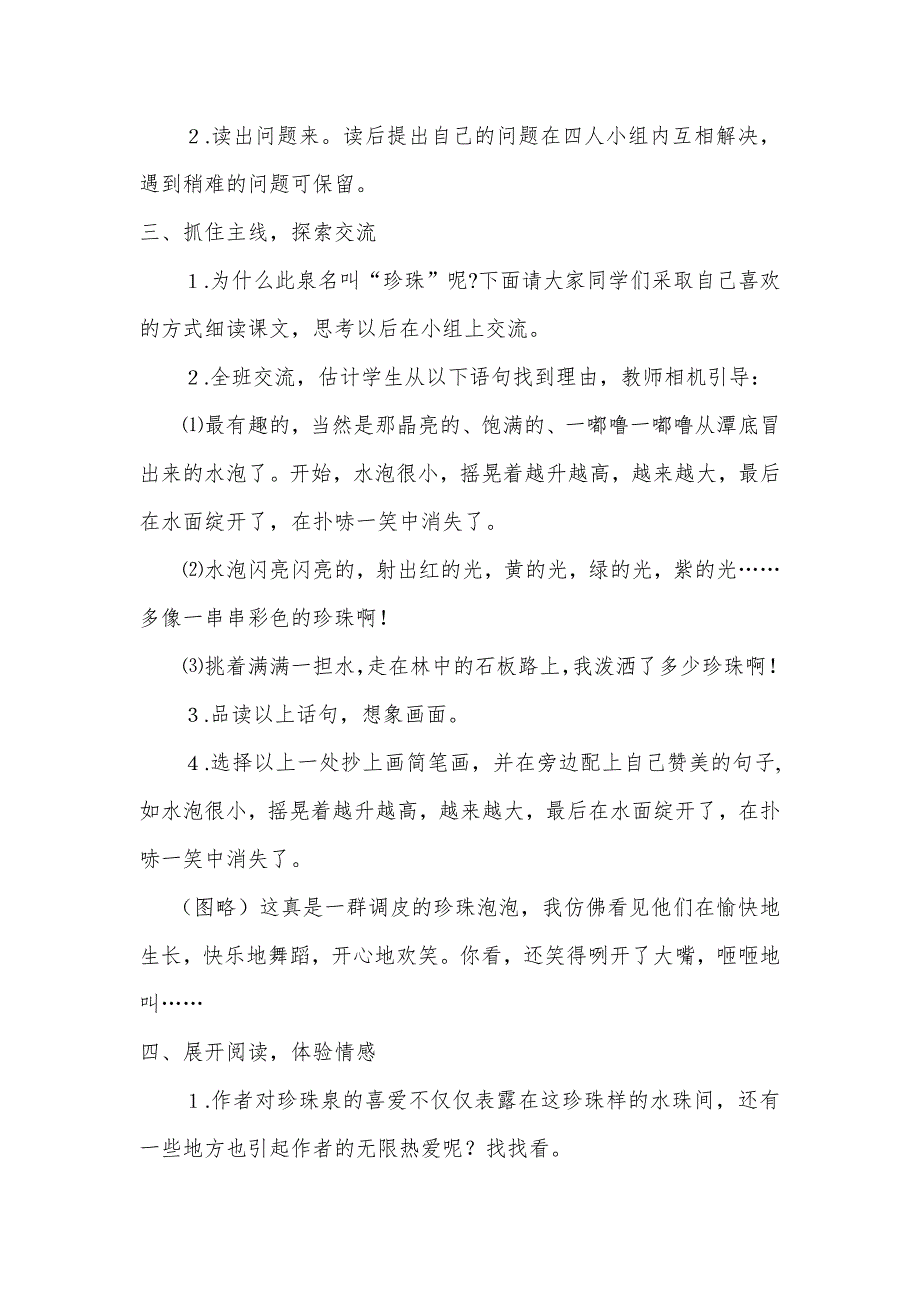 ２.读出问题来。读后提出自己的问题在四人小组内互相解决，
遇到稍难的问题可保留。
三、抓住主线，探索交流
１.为什么此泉名叫“珍珠”呢?下面请大家同学们采取自己喜欢
的方式细读课文，思考以后在小组上交流。
２.全班交流，估计学生从以下语句找到理由，教师相机引导：
⑴最有趣的，当然是那晶亮的、饱满的、一嘟噜一嘟噜从潭底冒
出来的水泡了。开始，水泡很小，摇晃着越升越高，越来越大，最后
在水面绽开了，在扑哧一笑中消失了。
⑵水泡闪亮闪亮的，射出红的光，黄的光，绿的光，紫的光……
多像一串串彩色的珍珠啊！
⑶挑着满满一担水，走在林中的石板路上，我泼洒了多少珍珠啊！
３.品读以上话句，想象画面。
４.选择以上一处抄上画简笔画，并在旁边配上自己赞美的句子，
如水泡很小，摇晃着越升越高，越来越大，最后在水面绽开了，在扑
哧一笑中消失了。
（图略）这真是一群调皮的珍珠泡泡，我仿佛看见他们在愉快地
生长，快乐地舞蹈，开心地欢笑。你看，还笑得咧开了大嘴，咂咂地
叫……
四、展开阅读，体验情感
１.作者对珍珠泉的喜爱不仅仅表露在这珍珠样的水珠间，还有
一些地方也引起作者的无限热爱呢？找找看。